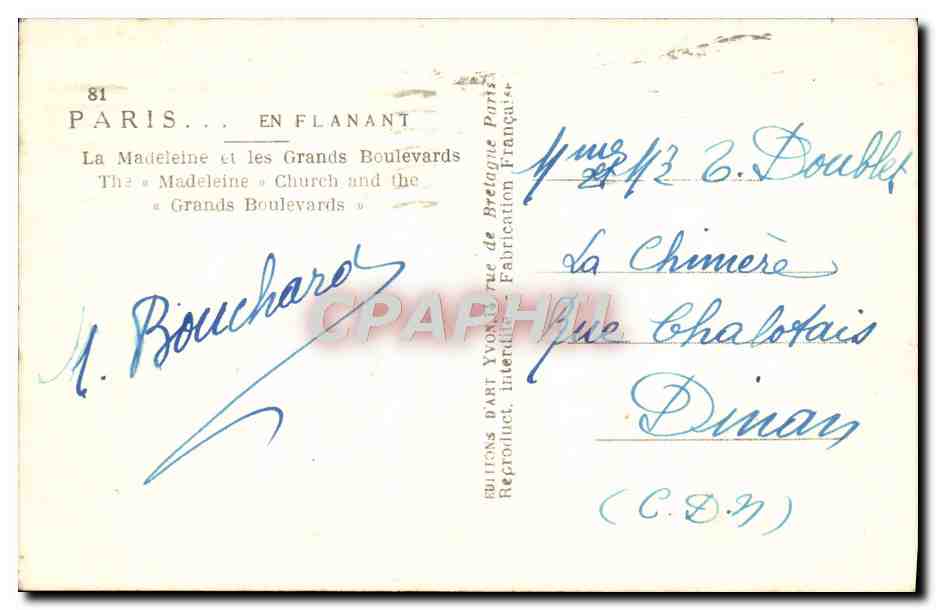 81
PARIS... EN FLANANT
La Madeleine et les Grands Boulevards
The « Madeleine » Church and the
« Grands Boulevards »
M. Bouchard
EDITIONS D'ART YVON, rue de Bretagne Paris
Reproduct. interdite Fabrication Française
CPAPHIL
Mme et Mr Doublet
La Chimère
Rue Chalotais
Dinan
(C.D.N)